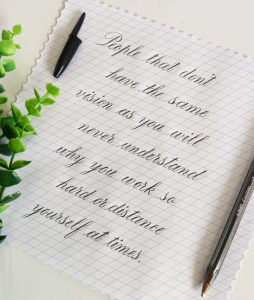 People that don't
have the same
vision as you will
never understand
why you work so
hard or distance
yourself at times.